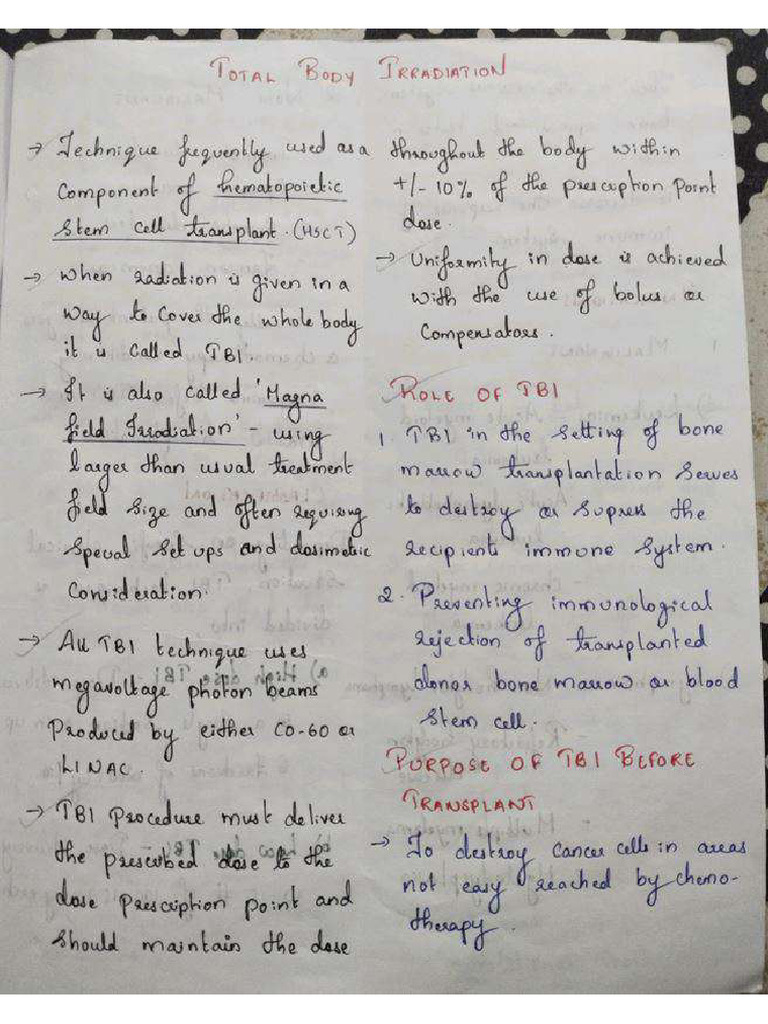 TOTAL BODY IRRADIATION
→ Technique frequently used as a
component of hematopoietic
stem cell transplant. (HSCT)
→ when radiation is given in a
way to cover the whole body
it is called TBI.
→ It is also called 'Magna
field Irradiation' - using
larger than usual treatment
field size and often requiring
special set ups and dosimetric
Consideration.
→ All TBI technique uses
megavoltage photon beams
Produced by either CO-60 or
LINAC.
→ TBI Procedure must deliver
the prescribed dose to the
dose prescription point and
should maintain the dose
throughout the body within
+/- 10% of the prescription point
dose.
→ Uniformity in dose is achieved
with the use of bolus or
compensators.
ROLE OF TBI
1 TBI in the setting of bone
marrow transplantation serves
to destroy or supress the
recipients immune system.
2. Preventing immunological
rejection of transplanted
donor bone marrow or blood
stem cell.
PURPOSE OF TBI BEFORE
TRANSPLANT
→ To destroy cancer cells in areas
not easy reached by chemo-
therapy.